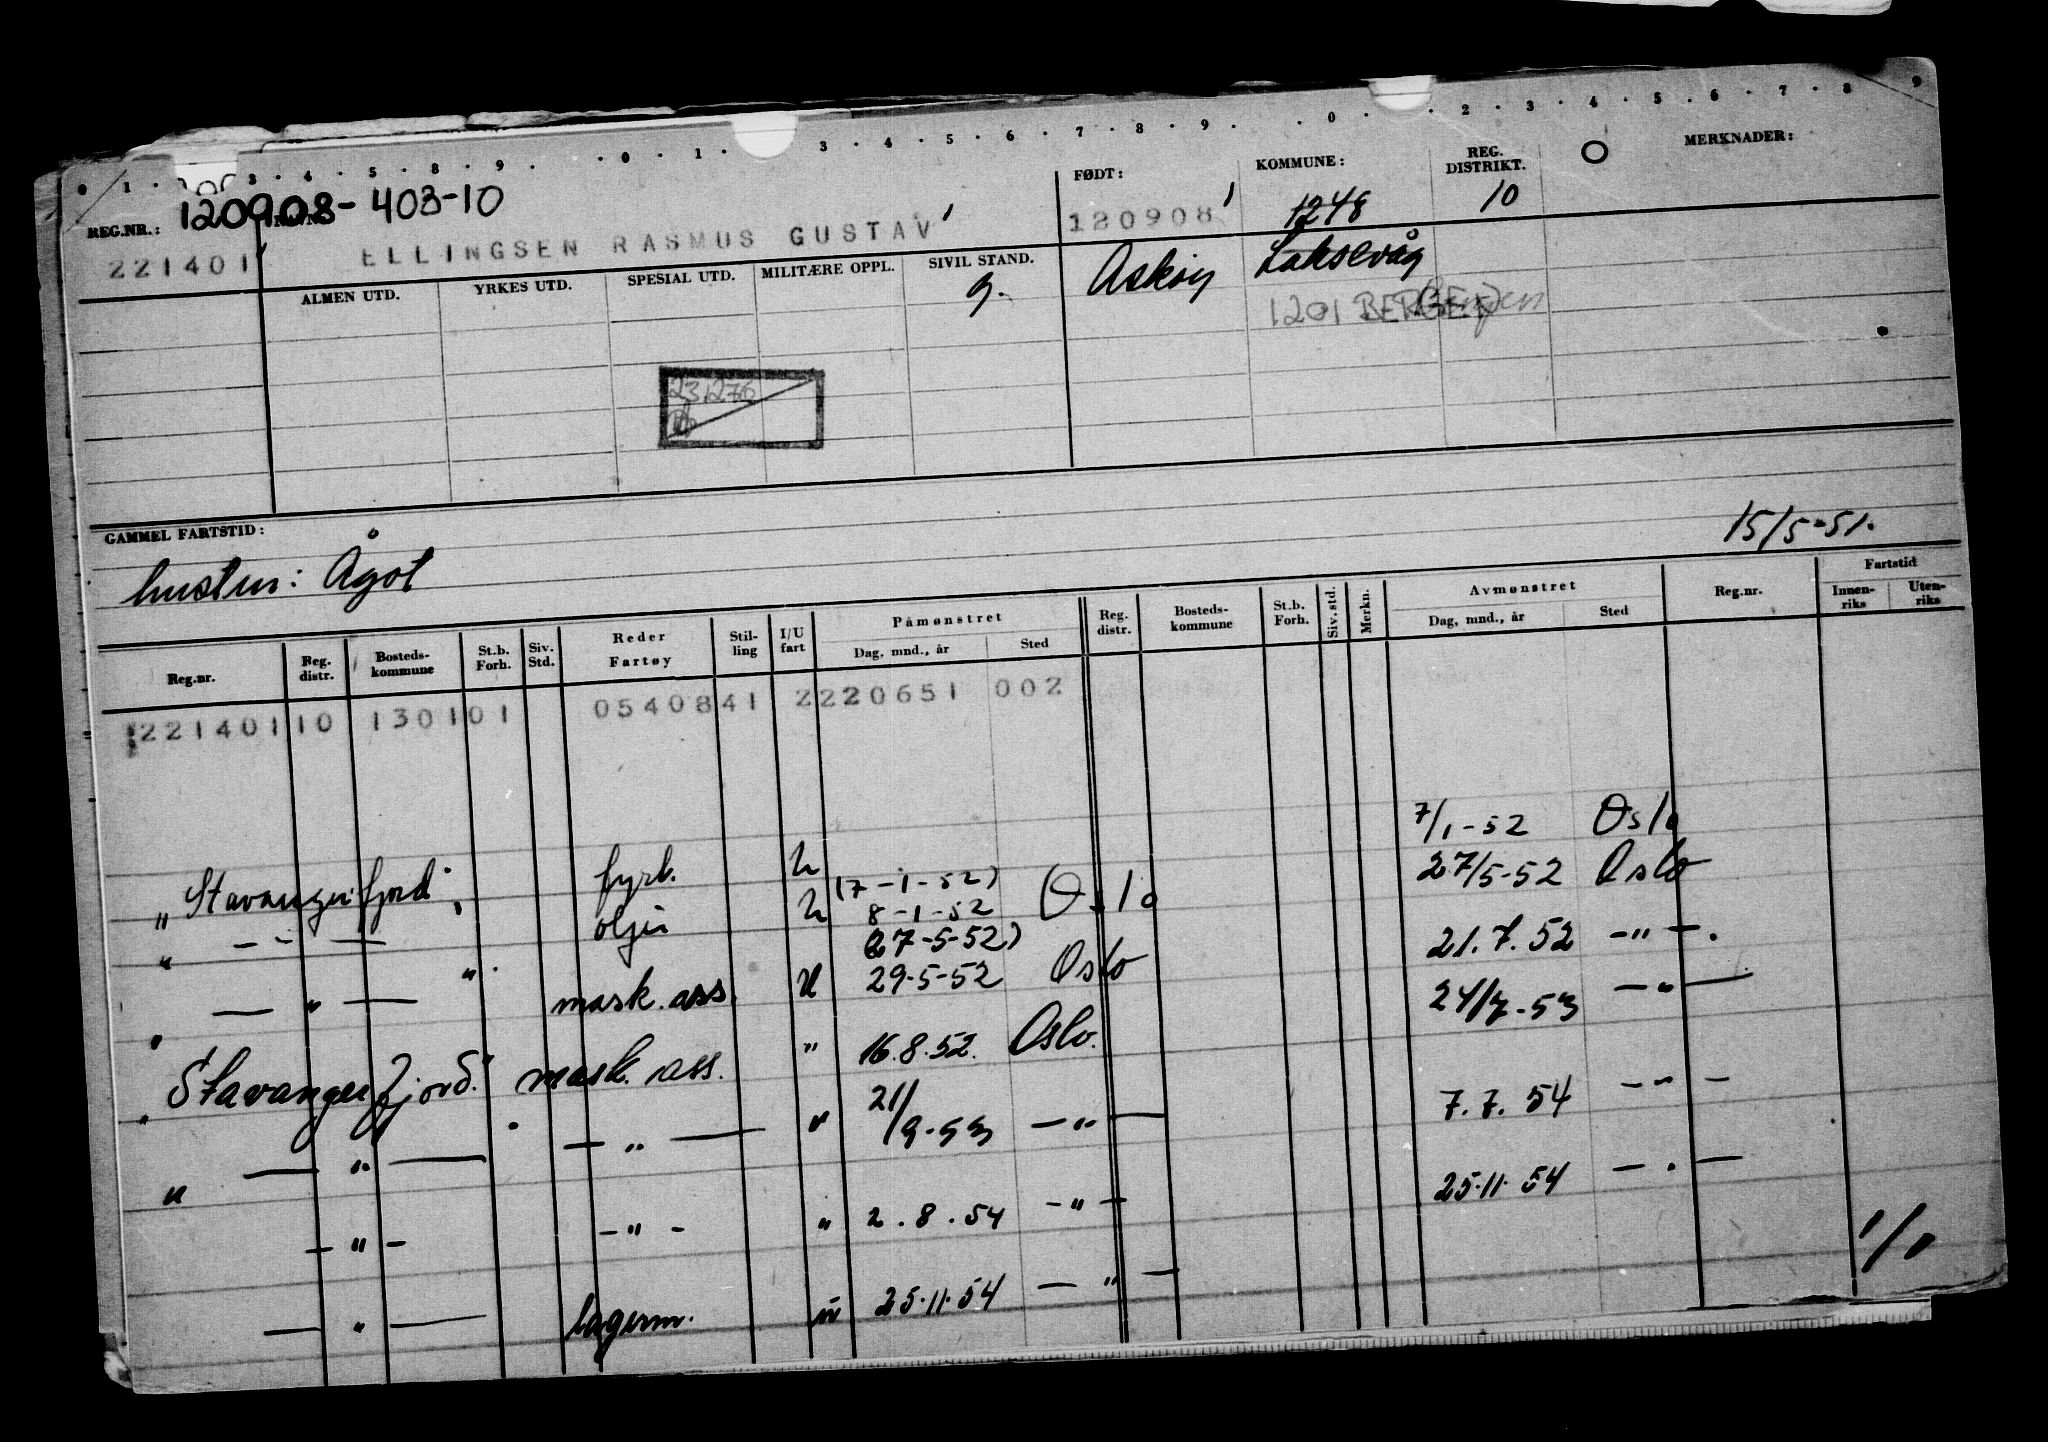 0 1 3 4 5 8 9 0 1 3 4 5 6 7 8 9 0 2 3 4 5 6 7 8 9
REG.NR.: 120908-403-10 FØDT: KOMMUNE: REG. DISTRIKT. MERKNADER:
221401 ELLINGSEN RASMUS GUSTAV 120908 1248 10
ALMEN UTD. YRKES UTD. SPESIAL UTD. MILITÆRE OPPL. SIVIL STAND. Askøy Laksevåg
g. 1201 BERGEN
GAMMEL FARTSTID: 15/5-51.
hustru: Ågot
Reg.nr. Reg. distr. Bosteds-kommune St.b. Forh. Siv. Std. Reder Fartøy Stil-ling I/U fart Påmønstret Dag, mnd., år Sted Reg. distr. Bosteds-kommune St.b. Forh. Siv.std. Merkn. Avmønstret Dag, mnd., år Sted Reg.nr. Fartstid Innen-riks Uten-riks
221401 10 1301 01 0540841 2 220651 002
7/1-52 Oslo
"Stavangerfjord" fyrb. U (7-1-52) 27/5-52 Oslo
" — " — oljer U 8-1-52 Oslo
(27-5-52) 21.7.52 —"—.
" — " — " mask. ass. U 29-5-52 Oslo
24/7-53 —"—
"Stavangerfjord." mask. ass. " 16.8.52. Oslo.
" — " — —"— " 21/9-53 —"— 7.7.54 —"—
—"— —"— " 2.8.54 —"— 25.11.54 —"—
— " — lagerm. " 25.11.54 —"— 1/1